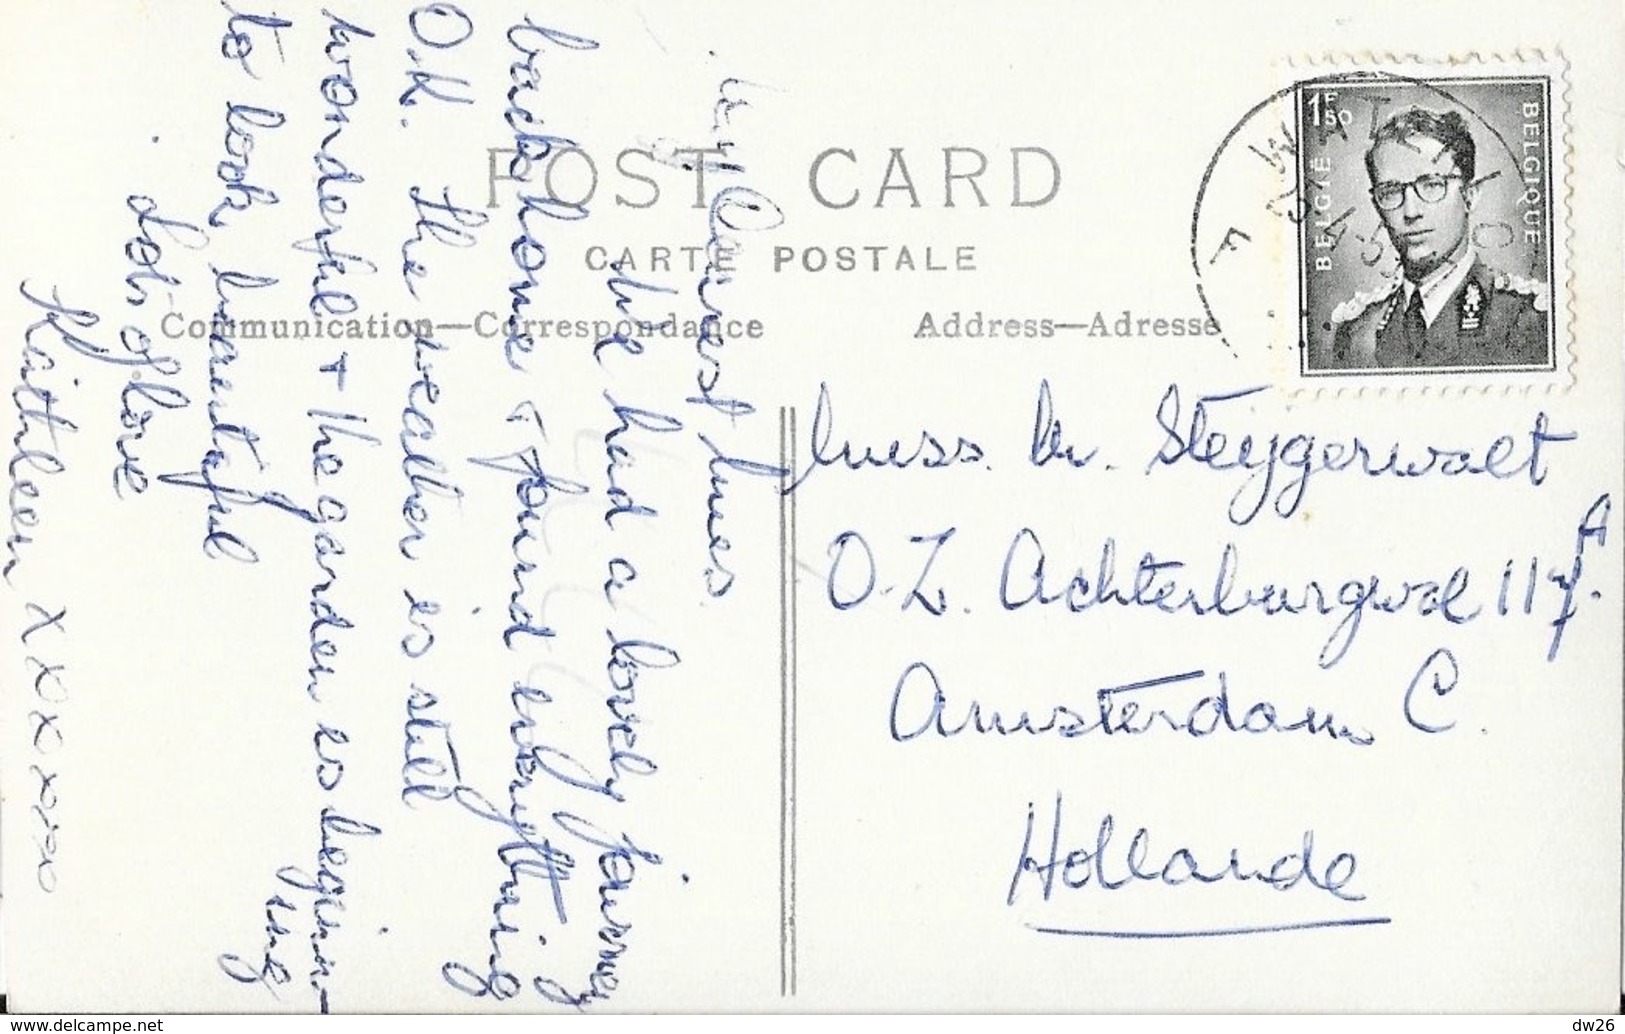 POST CARD
CARTE POSTALE
Communication—Correspondance
Address—Adresse
BELGIE
BELGIQUE
1F50
My Dearest Mies.
We had a lovely journey
back home + found everything
O.K. The weather is still
wonderful + the garden is begin-
ning
to look beautiful
Lots of love
Kathleen XXXXXXX
Miss. M. Steijgerwalt
O.Z. Achterburgwal 117A.
Amsterdam C.
Hollande
www.delcampe.net
dw26